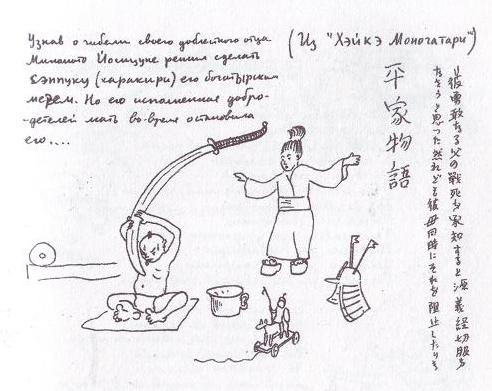 Узнав о гибели своего доблестного отца
Минамото Йосицуне решил сделать
Сэппуку (харакири) его богатырским
мечем. Но его исполненная добро-
-детелей мать во-время остановила
его....
(Из "Хэйкэ Моногатари")
平家物語
彼勇敢なる父の戦死を知すると源義経切服を
なさうと思った然れども彼母同時にそれを阻止したりき